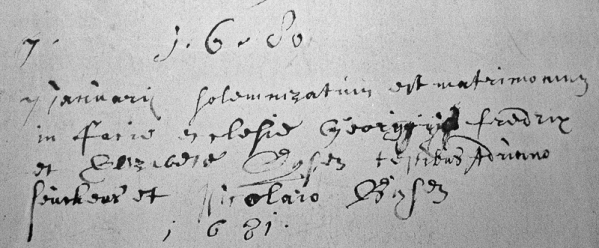 7. 1680
7 januarij solemnizatum est matrimonium
in facie ecclesie Georgij fredrix
et Elizabete testibus Adriano
et Nicolaio
1681.